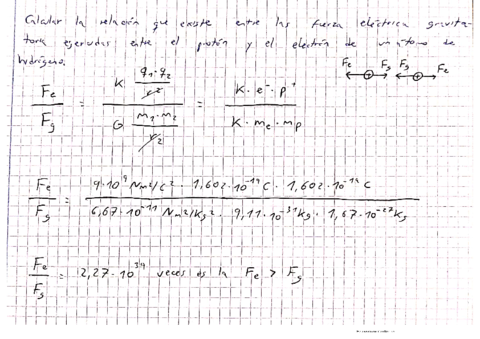 Calcular la relación que existe entre las fuerza eléctrica gravita-
toria ejercidas entre el protón y el electrón de un átomo de
hidrógeno.
Fe Fg Fg Fe
Fe/Fg = (K · q1·q2/r²)/(G · m1·m2/r²) = (K·e⁻·p⁺)/(K·me·mp)
Fe/Fg = (9·10⁹ Nm²/C² · 1,602·10⁻¹⁹ C · 1,602·10⁻¹⁹ C)/(6,67·10⁻¹¹ Nm²/Kg² · 9,11·10⁻³¹ Kg · 1,67·10⁻²⁷ Kg)
Fe/Fg = 2,27·10³⁹ veces es la Fe > Fg